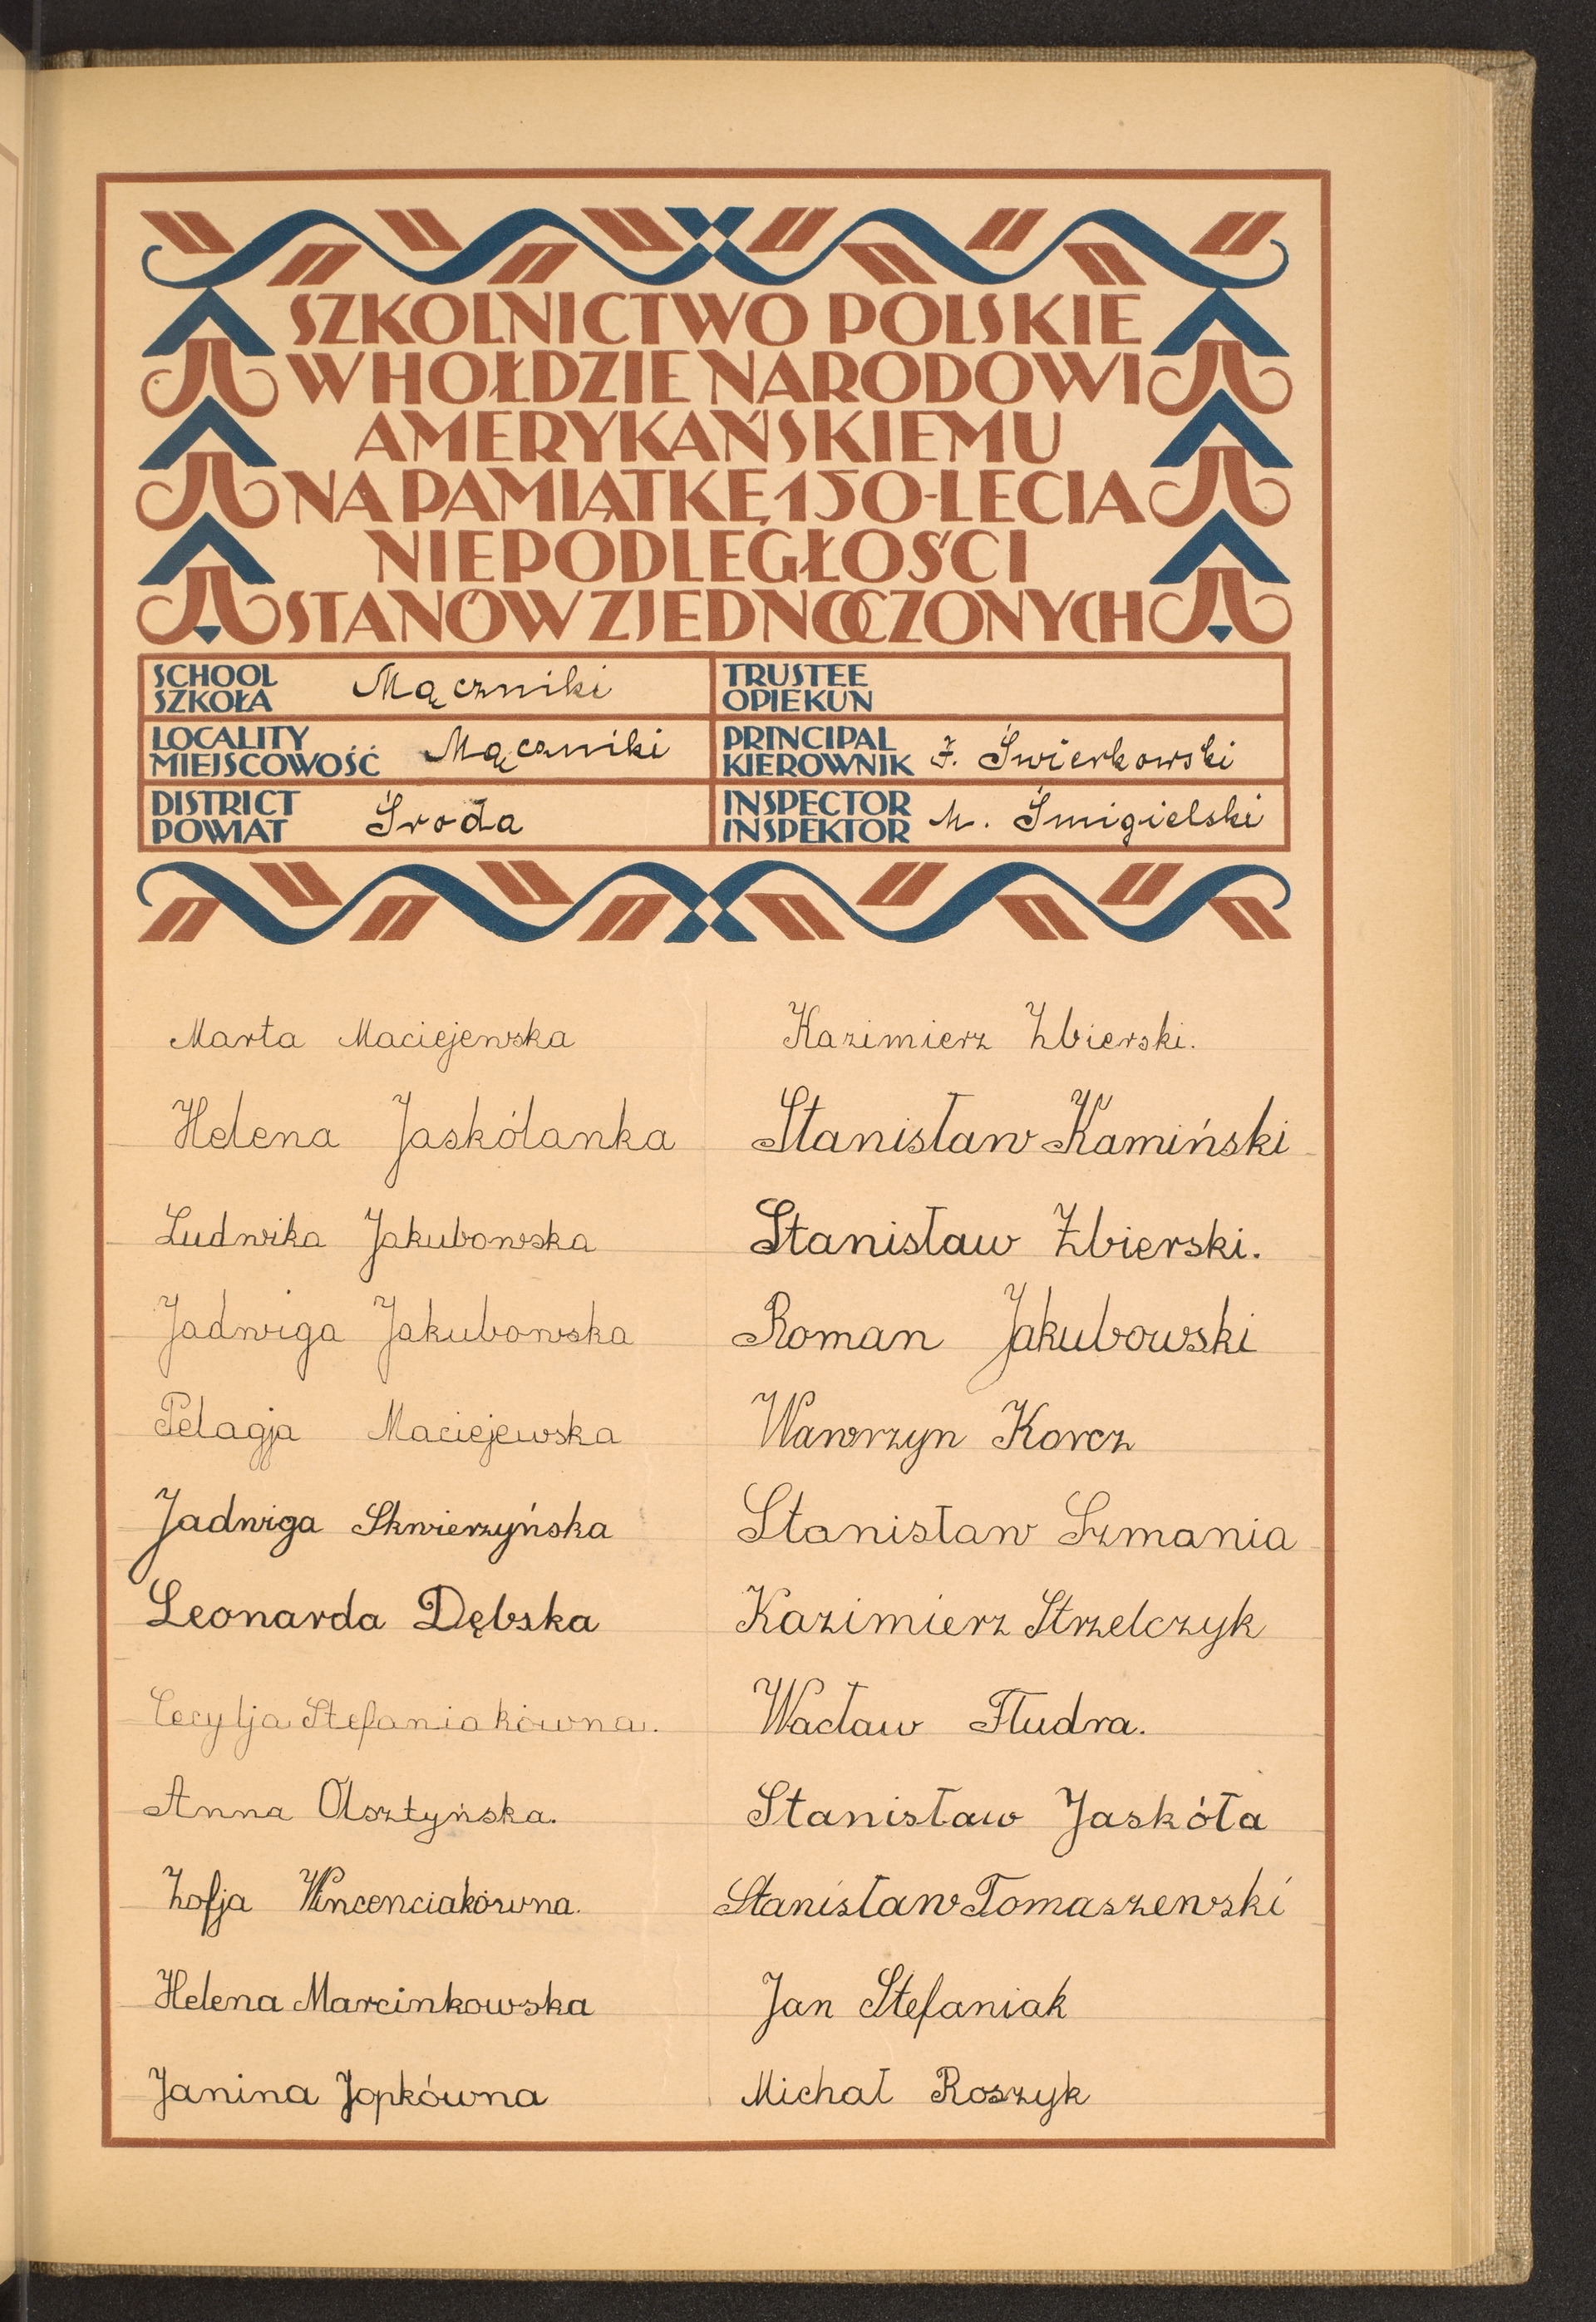 SZKOLNICTWO POLSKIE
W HOŁDZIE NARODOWI
AMERYKAŃSKIEMU
NA PAMIĄTKĘ 150-LECIA
NIEPODLEGŁOŚCI
STANÓW ZJEDNOCZONYCH
SCHOOL
SZKOŁA Mączniki
TRUSTEE
OPIEKUN
LOCALITY
MIEJSCOWOŚĆ Mączniki
PRINCIPAL
KIEROWNIK F. Świerkowski
DISTRICT
POWIAT Środa
INSPECTOR
INSPEKTOR M. Śmigielski
Marta Maciejewska
Helena Jaskólanka
Ludwika Jakubowska
Jadwiga Jakubowska
Pelagja Maciejewska
Jadwiga Skwierzyńska
Leonarda Dębska
Cecylja Stefaniakówna.
Anna Olsztyńska.
Zofja Wincenciakówna.
Helena Marcinkowska
Janina Jopkówna
Kazimierz Zbierski.
Stanisław Kamiński
Stanisław Zbierski.
Roman Jakubowski
Wawrzyn Korcz
Stanisław Szmania
Kazimierz Strzelczyk
Wacław Fludra.
Stanisław Jaskóła
Stanisław Tomaszewski
Jan Stefaniak
Michał Roszyk